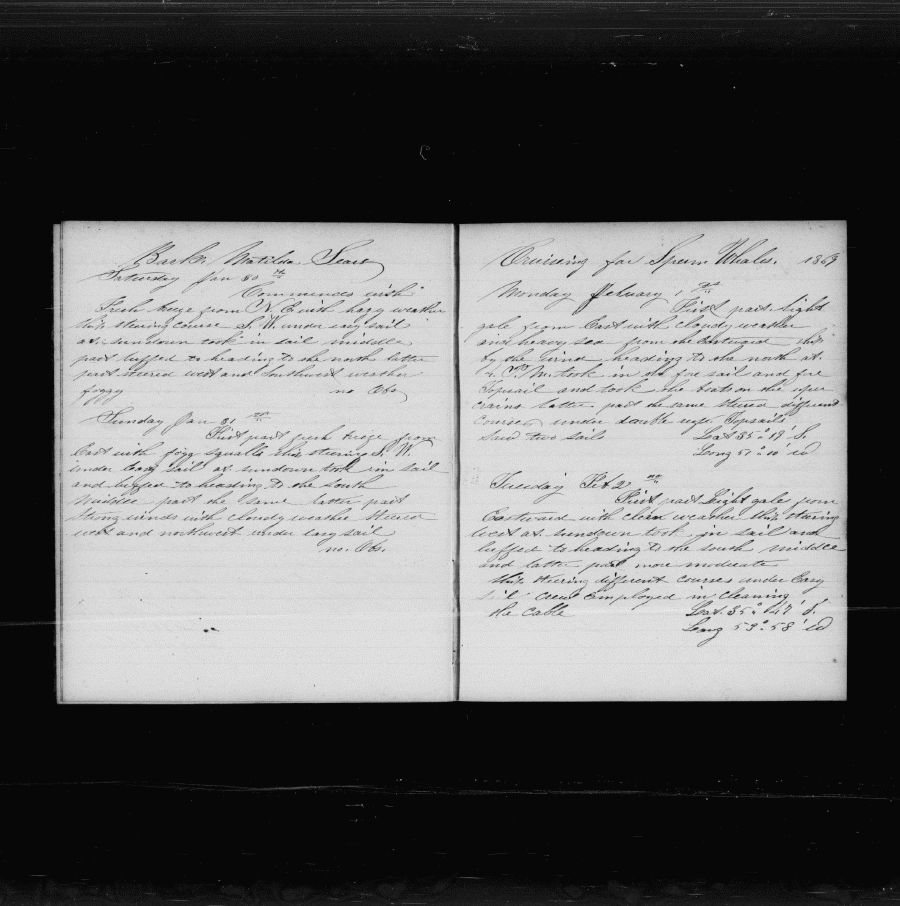 Bark Matilda Sears
Saturday Jan 30 th
Commences with
Fresh breze from N. E with hazy weather
ship stering course S. W. under easy sail
at sundown took in sail middle
part luffed to heading to the north latter
part stered west and Southwest weather
foggy no Obs
Sunday Jan 31 st
First part fresh breze from
East with fogg squalls ship stering S. W.
under easy sail at sundown took in sail
and luffed to heading to the south
Middle part the same latter part
Strong winds with cloudy weather stered
west and northwest under easy sail
no. Obs.
Cruising for Sperm Whales. 1869
Monday Febuary 1 st
First part light
gale from East with cloudy weather
and heavy sea from the Eastward ship
by the wind heading to the north at
P. M. took in the fore sail and fore
Topsail and took the boats on the uper
crains latter part the same stered different
courses under double reefs Topsails
Saw two sails Lat 35° 19' S.
Long 51° 10' W
Tuesday Feb 2 nd
First part Light gale from
Eastward with clear weather ship stering
West at sundown took in sail and
luffed to heading to the south middle
and latter part more moderate
ship stering different courses under Easy
sail crew Employed in cleaning
the cable Lat 35° 47' S.
Long 53° 58' W